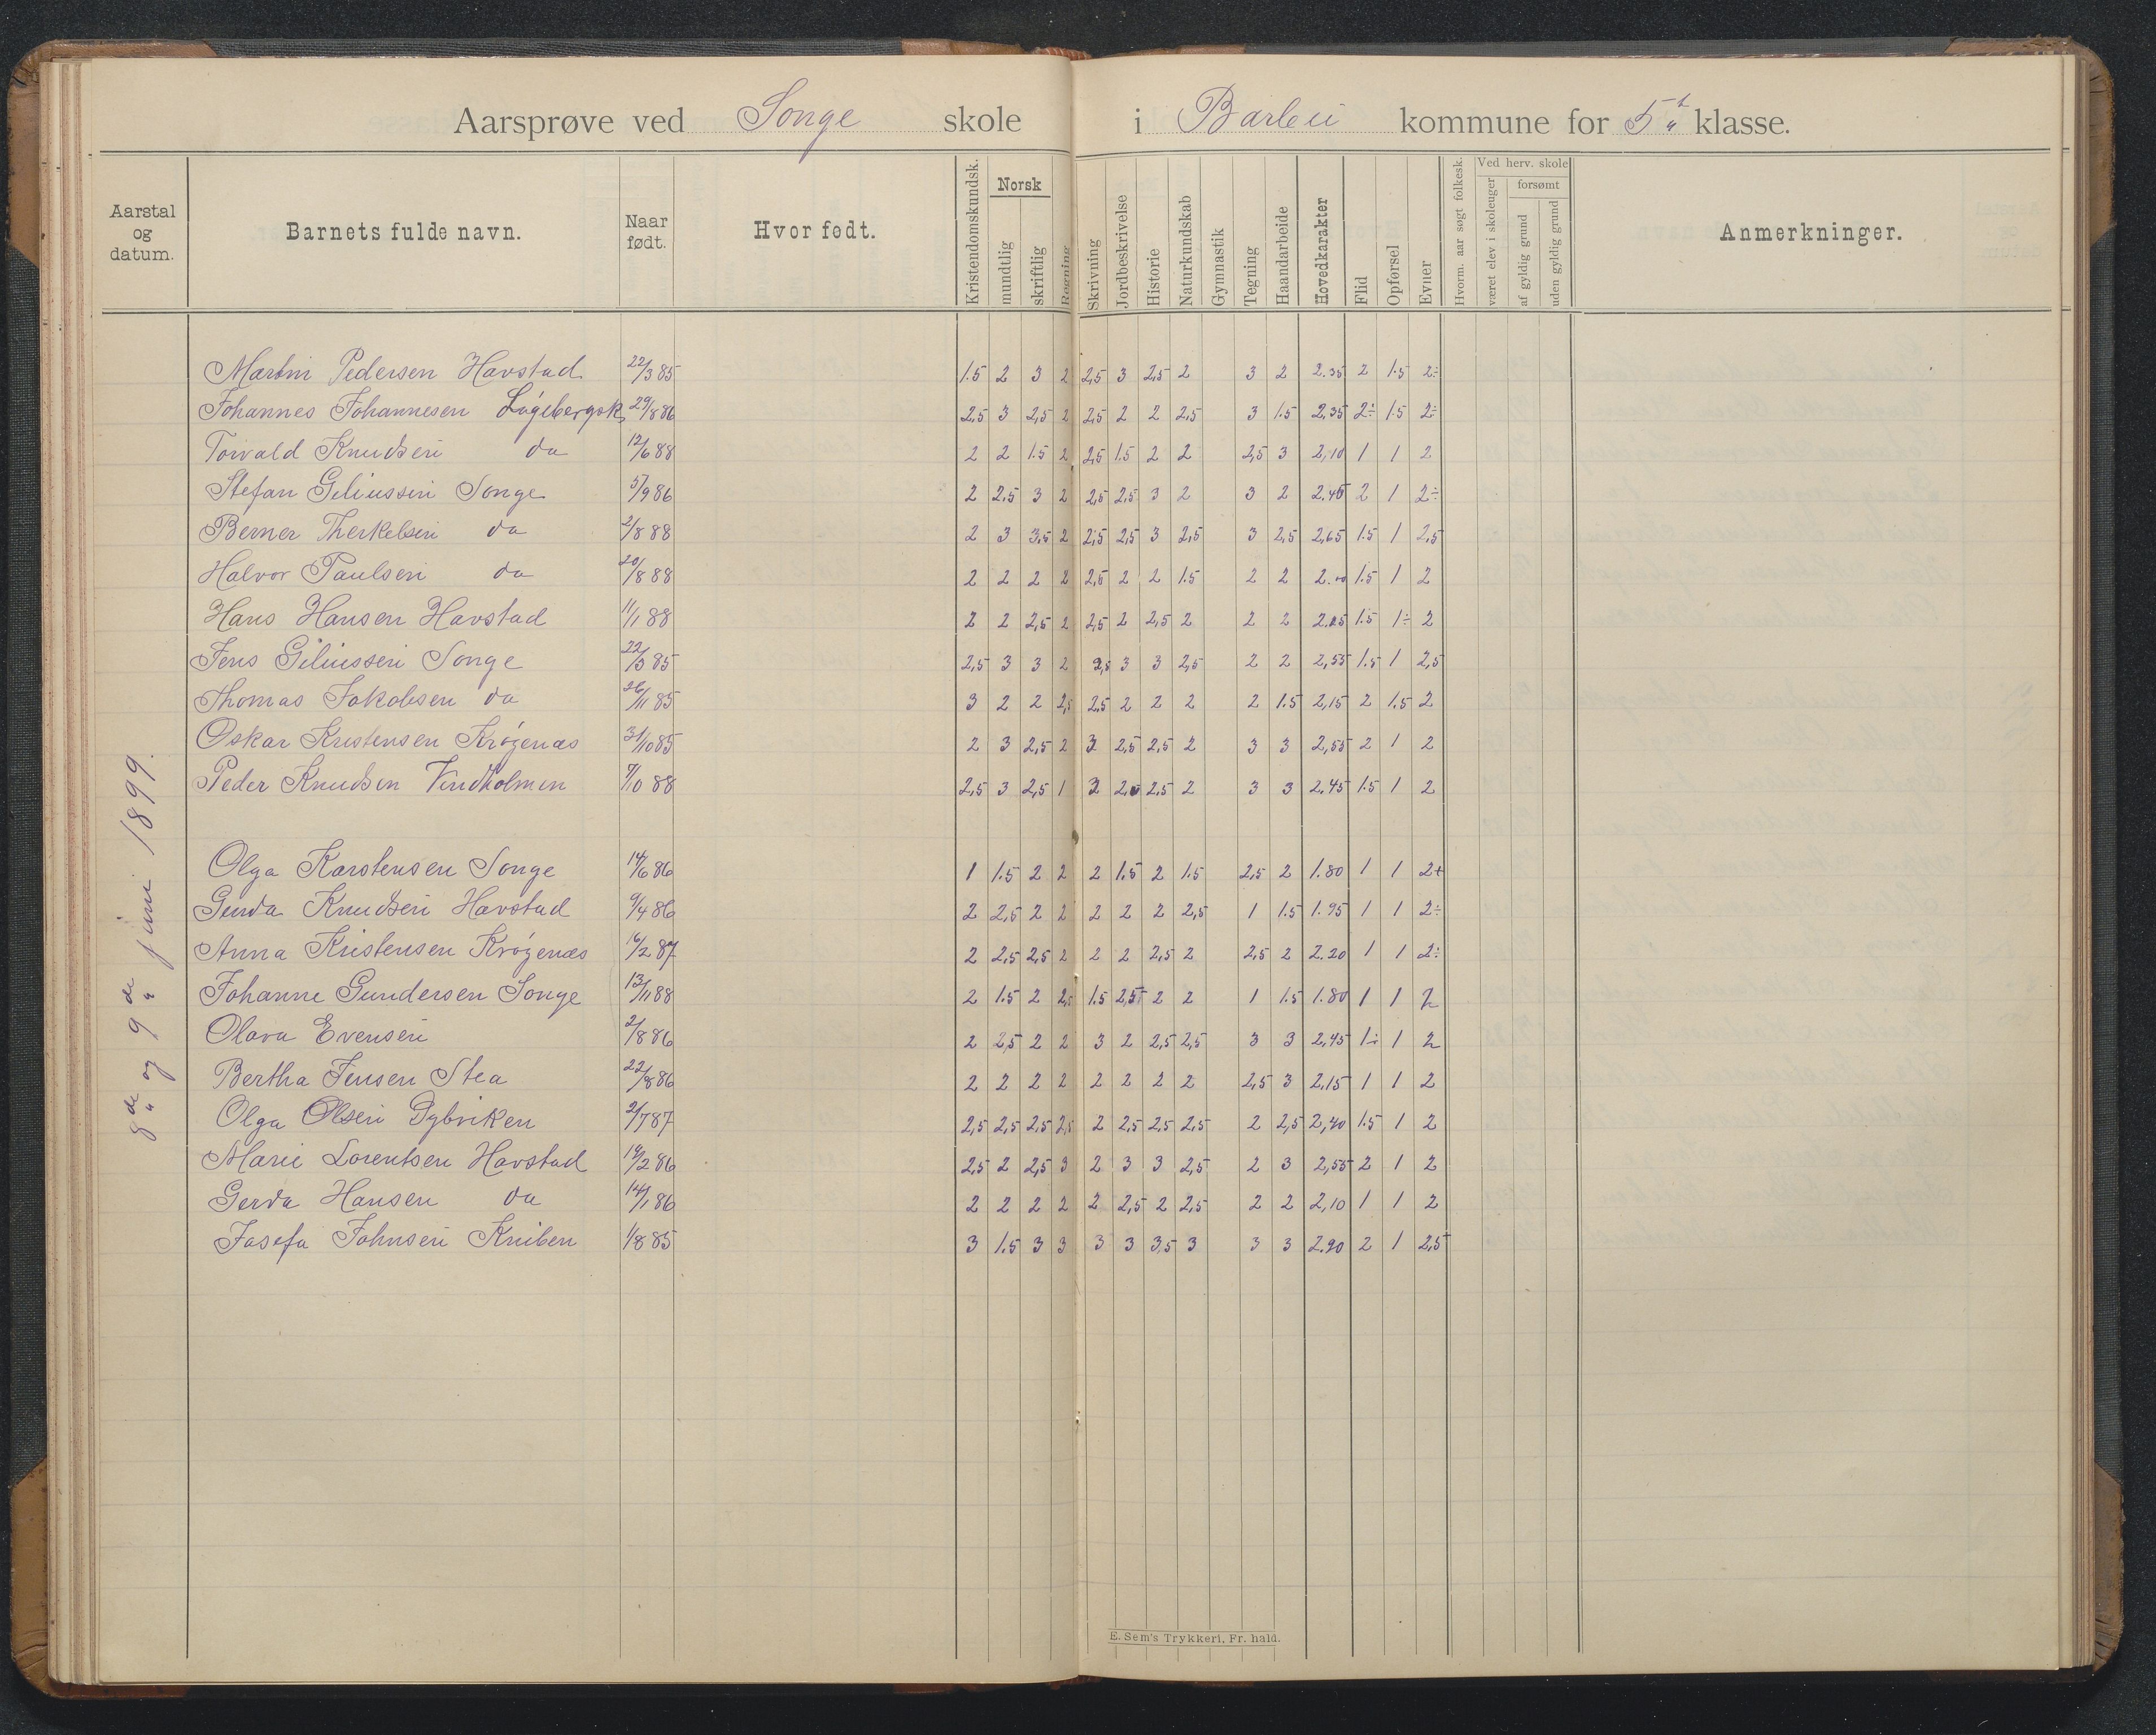 Aarsprøve ved Songe skole i Barbu kommune for 5te klasse.
Aarstal og datum.
Barnets fulde navn.
Naar født.
Hvor født.
Kristendomskundsk.
Norsk
mundtlig
skriftlig
Regning
Skrivning
Jordbeskrivelse
Historie
Naturkundskab
Gymnastik
Tegning
Haandarbeide
Hovedkarakter
Flid
Opførsel
Evner
Hvorm. aar søgt folkesk.
Ved herv. skole
været elev i skoleuger
forsømt
af gyldig grund
uden gyldig grund
Anmerkninger.
8de og 9de juni 1899.
Martin Pedersen Havstad 22/3 85 1.5 2 3 2 2,5 3 2,5 2 3 2 2.35 2 1.5 2÷
Johannes Johannesen 29/8 86 2,5 3 2,5 2 2,5 2 2 2,5 3 1.5 2,35 2÷ 1.5 2÷
Torvald Knudsen do 12/6 88 2 2 1.5 2 2,5 1.5 2 2 2,5 3 2,10 1 1 2
Stefan Giliussen Songe 5/9 86 2 2,5 3 2 2,5 2,5 3 2 3 2 2.45 2 1 2÷
Berner Therkelsen do 2/8 88 2 3 3,5 2 2,5 2,5 3 2,5 3 2,5 2,65 1.5 1 2,5
Halvor Paulsen do 20/8 88 2 2 2 2 2,5 2 2 1.5 2 2 2.00 1.5 1 2
Hans Hansen Havstad 11/1 88 2 2 2,5 2 2,5 2 2,5 2 2 2 2.15 1.5 1÷ 2
Jens Giliussen Songe 22/3 85 2,5 3 3 2 2,5 3 3 2,5 2 2 2,55 1.5 1 2,5
Thomas Jakobsen do 26/11 85 3 2 2 2,5 2,5 2 2 2 2 1.5 2,15 2 1.5 2
Oskar Kristensen Krøgenæs 31/10 85 2 3 2,5 2 3 2,5 2,5 2 3 3 2,55 2 1 2
Peder Knudsen Vindholmen 7/10 88 2,5 3 2,5 1 3 2,5 2 3 3 2.45 1.5 1 2
Olga Karstensen Songe 14/6 86 1 1.5 2 2 2 1.5 2 1.5 2,5 2 1.80 1 1 2+
Gerda Knudsen Havstad 9/4 86 2 2,5 2 2 2 2 2 2,5 1 1.5 1.95 1 1 2÷
Anna Kristensen Krøgenæs 16/2 87 2 2,5 2,5 2 2 2 2,5 2 2,5 2 2.20 1 1 2÷
Johanne Gundersen Songe 13/11 88 2 1.5 2 2,5 1.5 2,5 2 2 1 1.5 1.80 1 1 2
Olava Evensen 2/8 86 2 2,5 2 2 3 2 2,5 2,5 3 3 2,45 1÷ 1 2
Bertha Jensen Stea 22/8 86 2 2 2 2 2 2 2 2 2,5 3 2.15 1 1 2
Olga Olsen Dybviken 2/7 87 2,5 2,5 2,5 2,5 2 2,5 2,5 2,5 2 2,5 2,40 1.5 1 2
Marie Lorentsen Havstad 14/2 86 2,5 2 2,5 3 2 3 3 2,5 2 3 2,55 2 1 2
Gerda Hansen do 14/1 86 2 2 2 2 2 2,5 2 2,5 2 2 2,10 1 1 2
Josefa Johnsen Kniben 1/8 85 3 1.5 3 3 3 3 3.5 3 3 3 2.90 2 1 2,5
E. Sem's Trykkeri, Fr. hald.